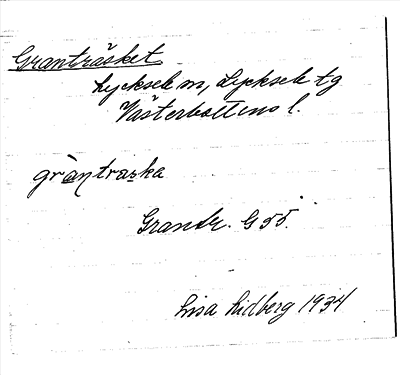 Granträsket
Lycksele sn, Lycksele tg
Västerbottens l.
gràntraska
Grantr. G 55.
Lisa Lidberg 1934